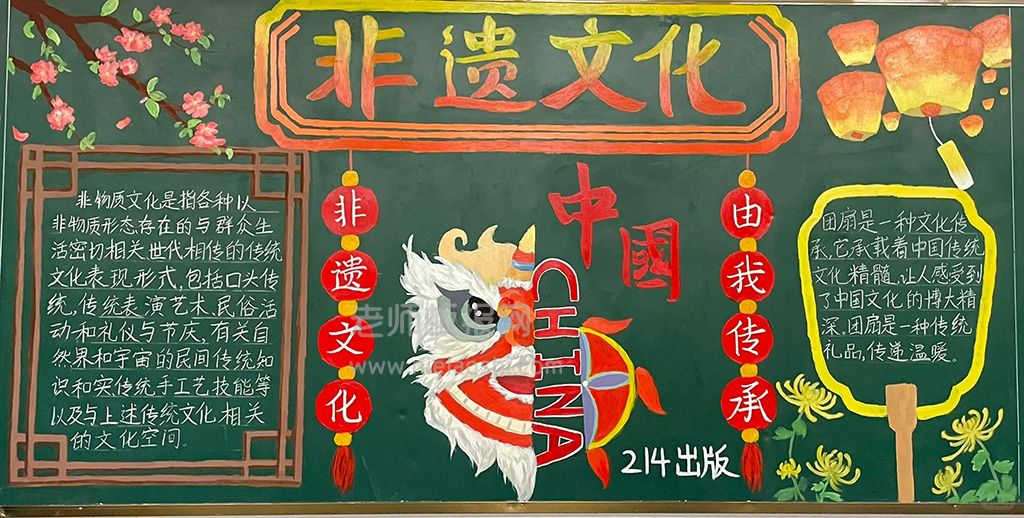 非遗文化
非物质文化是指各种以
非物质形态存在的与群众生
活密切相关世代相传的传统
文化表现形式,包括口头传
统,传统表演艺术,民俗活
动和礼仪与节庆,有关自
然界和宇宙的民间传统知
识和实传统手工艺技能等
以及与上述传统文化相关
的文化空间。
非遗文化
中國
CHINA
214出版
由我传承
团扇是一种文化传
承,它承载着中国传统
文化精髓,让人感受到
了中国文化的博大精
深,团扇是一种传统
礼品,传递温暖。